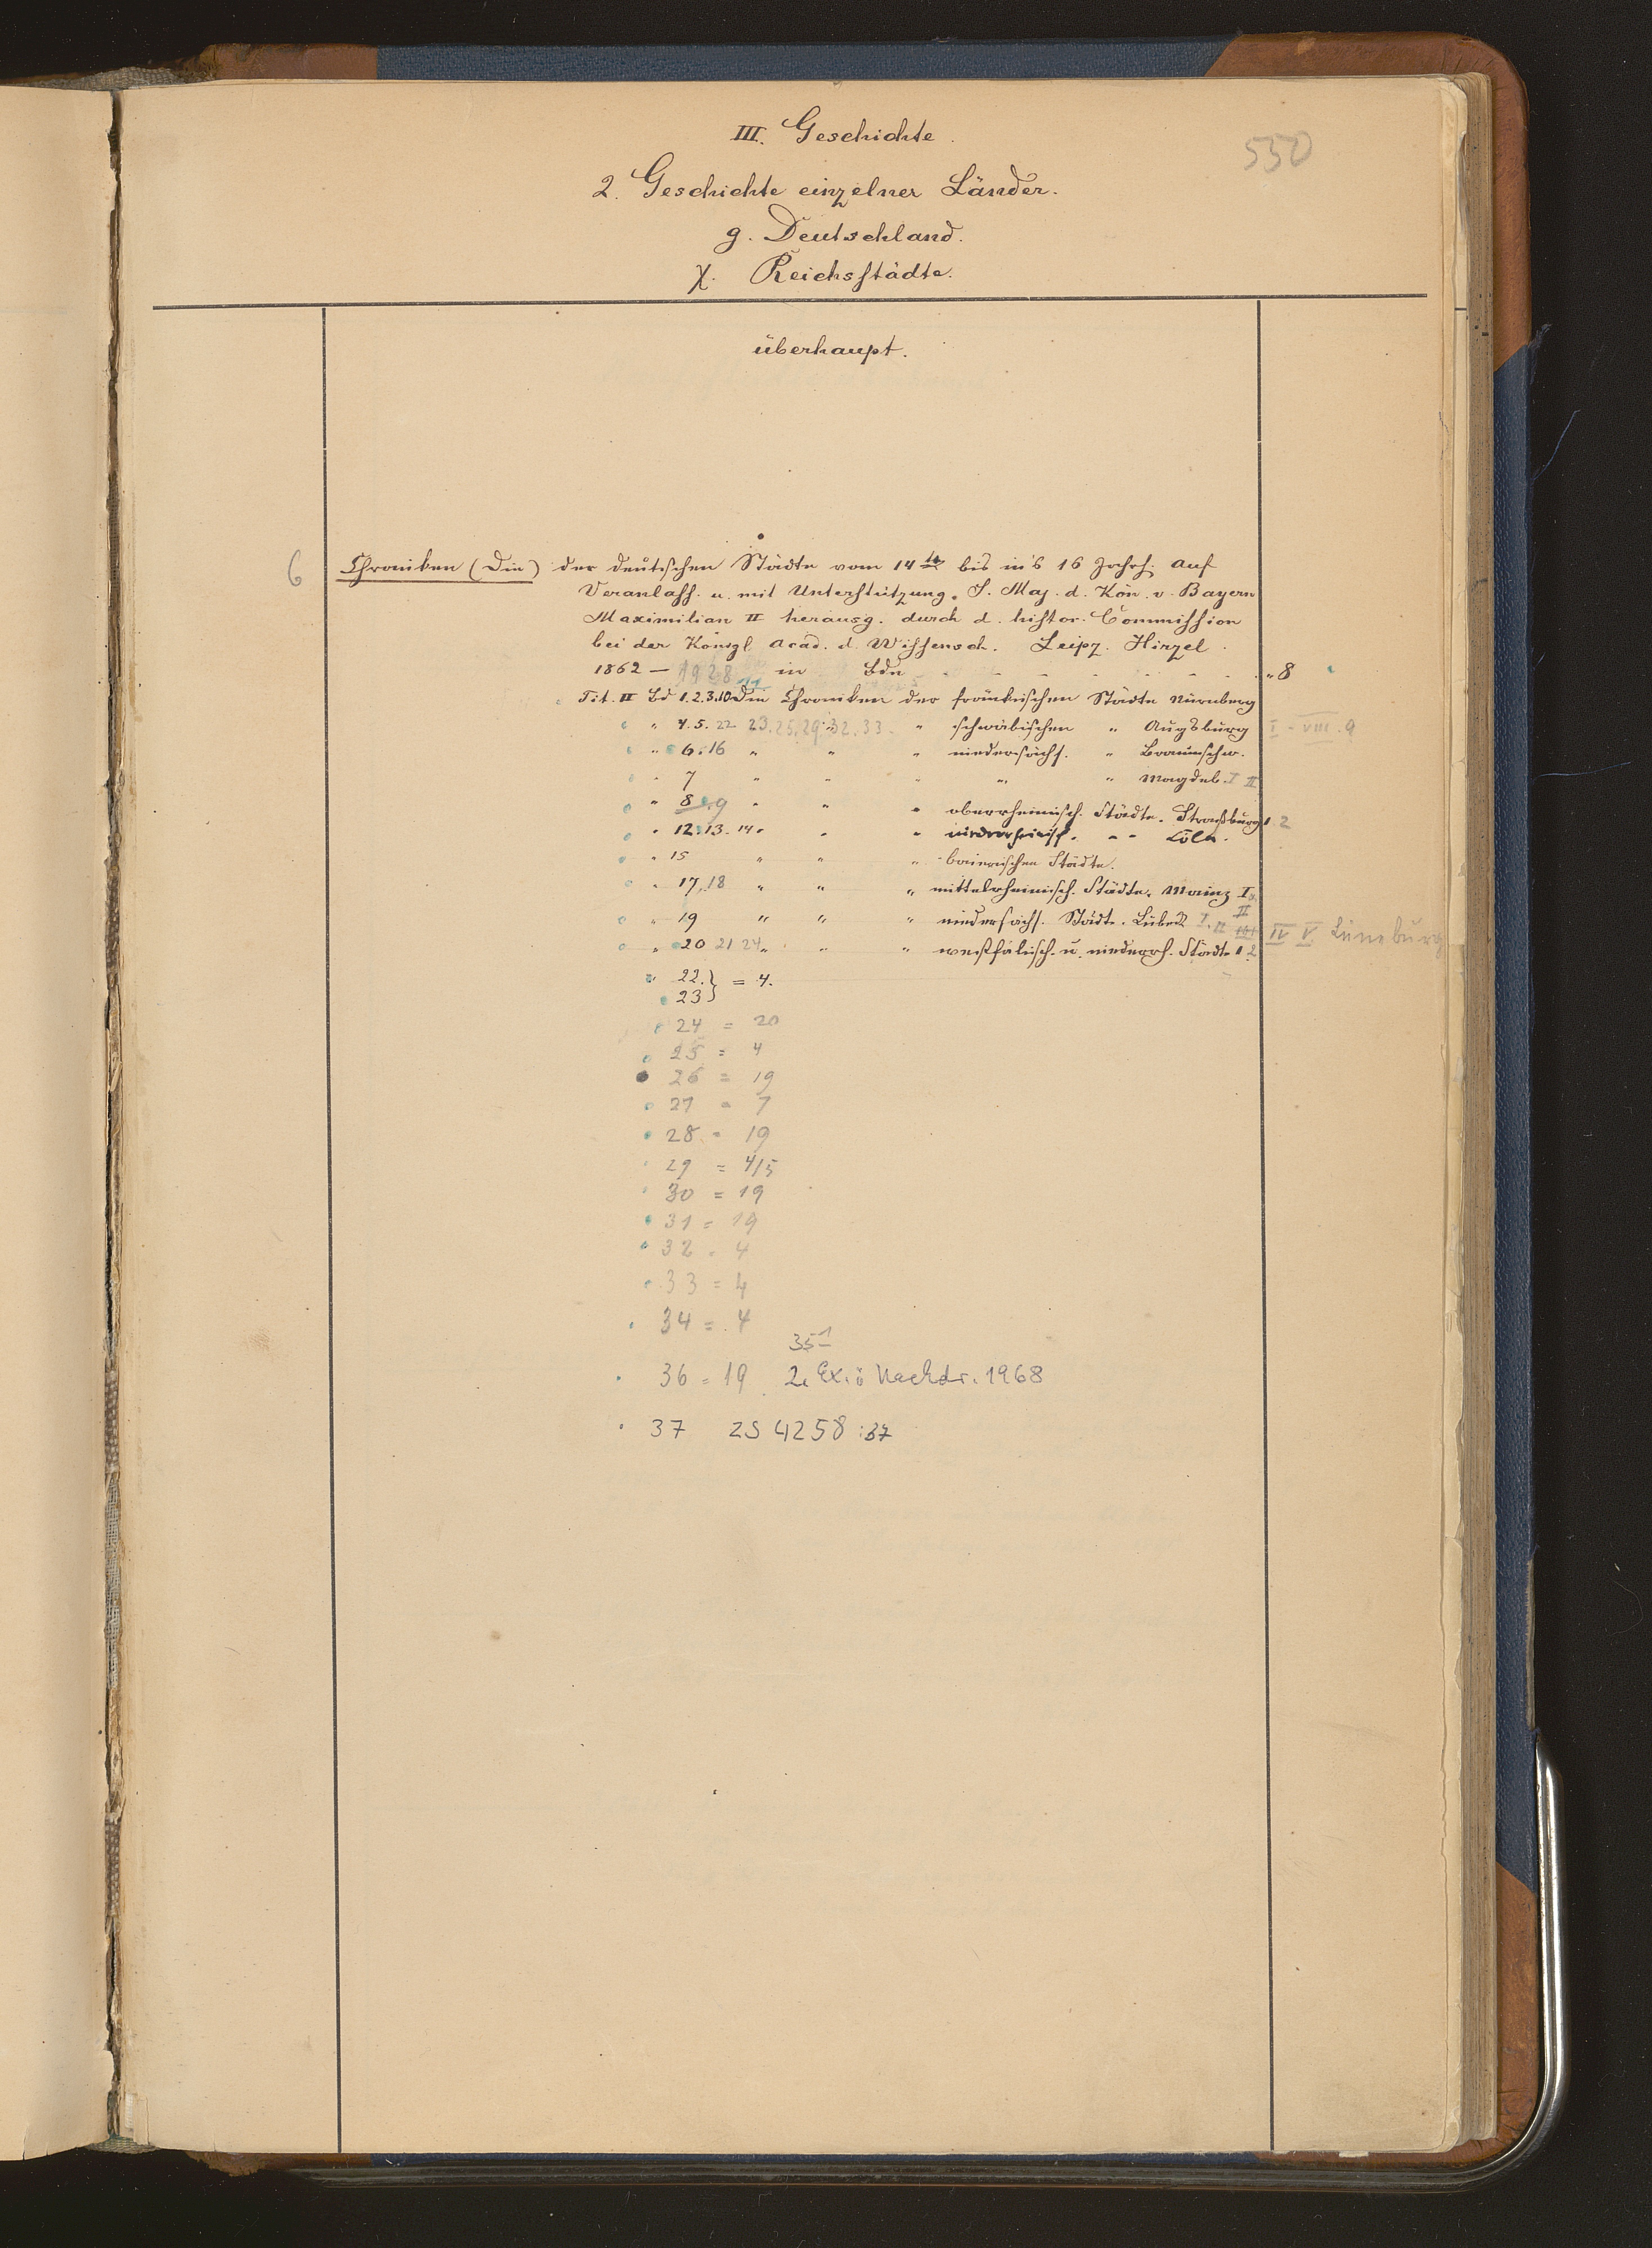 III. Geschichte.
550
2. Geschichte einzelner Länder.
g. Deutschland.
χ. Reichsstädte.
überhaupt.
6 Chroniken (Die) der deutschen Städte vom 14ten bis in's 16 Jahrh. Auf
Veranlass. u. mit Unterstützung. S. Maj. d. Kön. v. Bayern
Maximilian II herausg. durch d. histor. Commission
bei der Königl. Acad. d. Wissensch. Leipz. Hirzel.
1862 – 1928 in Bdn " 8
Tit. II Bd 1.2.3.10. Die Chroniken der fränkischen Städte Nürnberg
" 4.5. 22. 23. 25. 29. 32. 33. " schwäbischen " Augsburg I - VIII. 9
" 6. 16 " " " niedersächs. " Braunschw.
" 7 " " " " " Magdeb. I II
" 8. 9 " " " oberrheinisch. Städte. Straßburg 1. 2
" 12. 13. 14 " " " niederrheinisch. " " Cöln.
" 15 " " " bairischen Städte.
" 17, 18 " " " mittelrheinisch. Städte. Mainz I. II
" 19 " " " niedersächs. Städte. Lübeck I. II III IV V. Lüneburg
" 20 21 24 " " " westfälisch. u. niederrh. Städte 1. 2
" 22. } = 4.
23 }
24 = 20
25 = 4
26 = 19
27 = 7
28 = 19
29 = 4/5
30 = 19
31 = 19
32 = 4
33 = 4
34 = 4
35 1
36 = 19 2. Ex.: Nachdr. 1968
37 ZS 4258 : 37